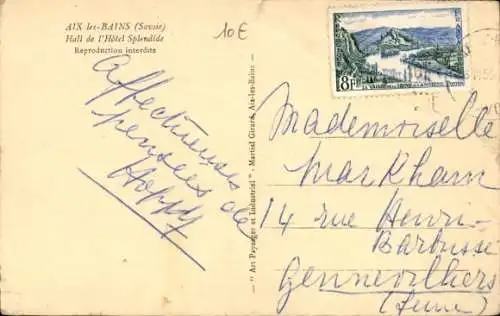 AIX les-BAINS (Savoie)
Hall de l'Hôtel Splendide
Reproduction interdite
10 E
8F
Affectueuses
pensées de
Hoppy
"Art Paysages et Industriel" - Martial Girard, Aix-les-Bains -
Mademoiselle
Markham
14 rue Henri-
Barbusse
Gennevilliers
(Seine)